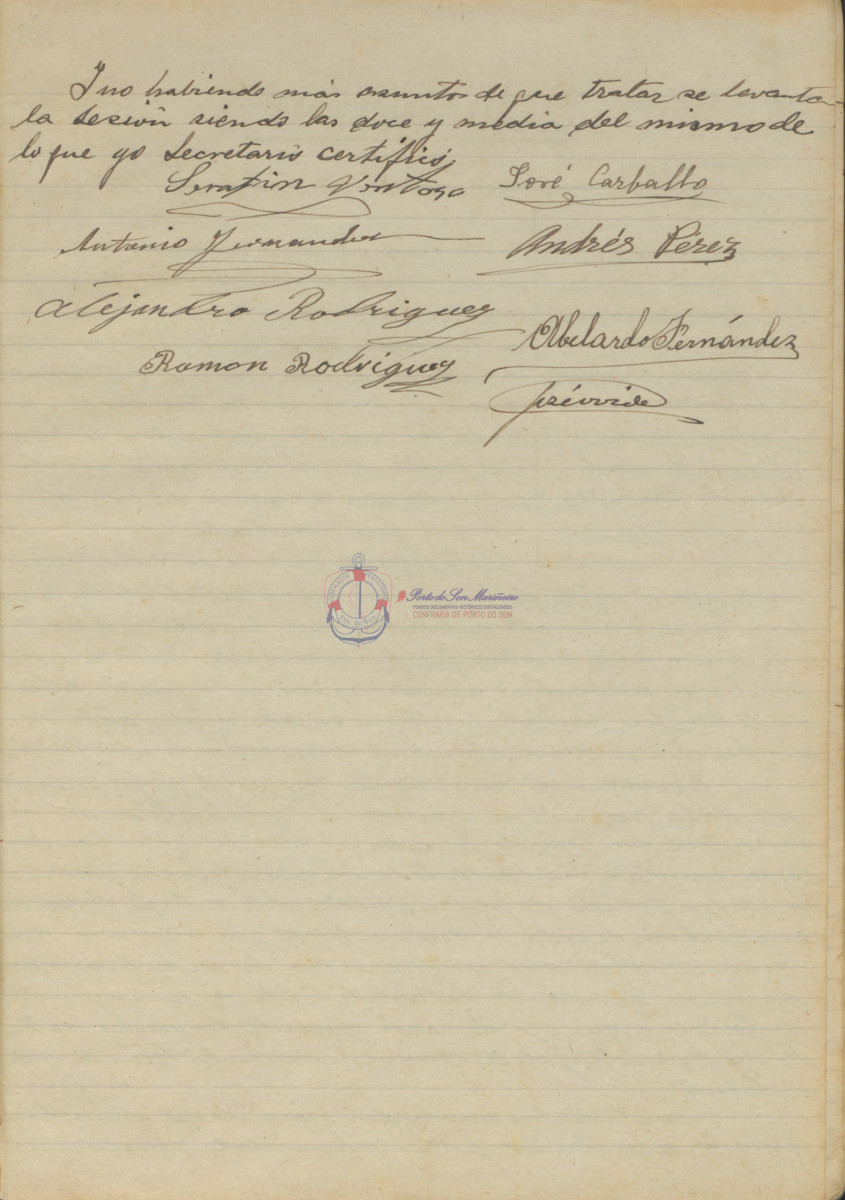 Y no habiendo más asuntos de que tratar se levanta
la sesión siendo las doce y media del mismo de
lo que yo secretario certifico.
Serafin Ventoso José Carballo
Antonio Fernandez Andrés Pérez
Alejandro Rodriguez
Abelardo Fernández
Ramon Rodriguez
#Porto do Son Mariñeiro
FONDOS DOCUMENTAIS HISTÓRICOS DIXITALIZADOS
CONFRARÍA DE PORTO DO SON